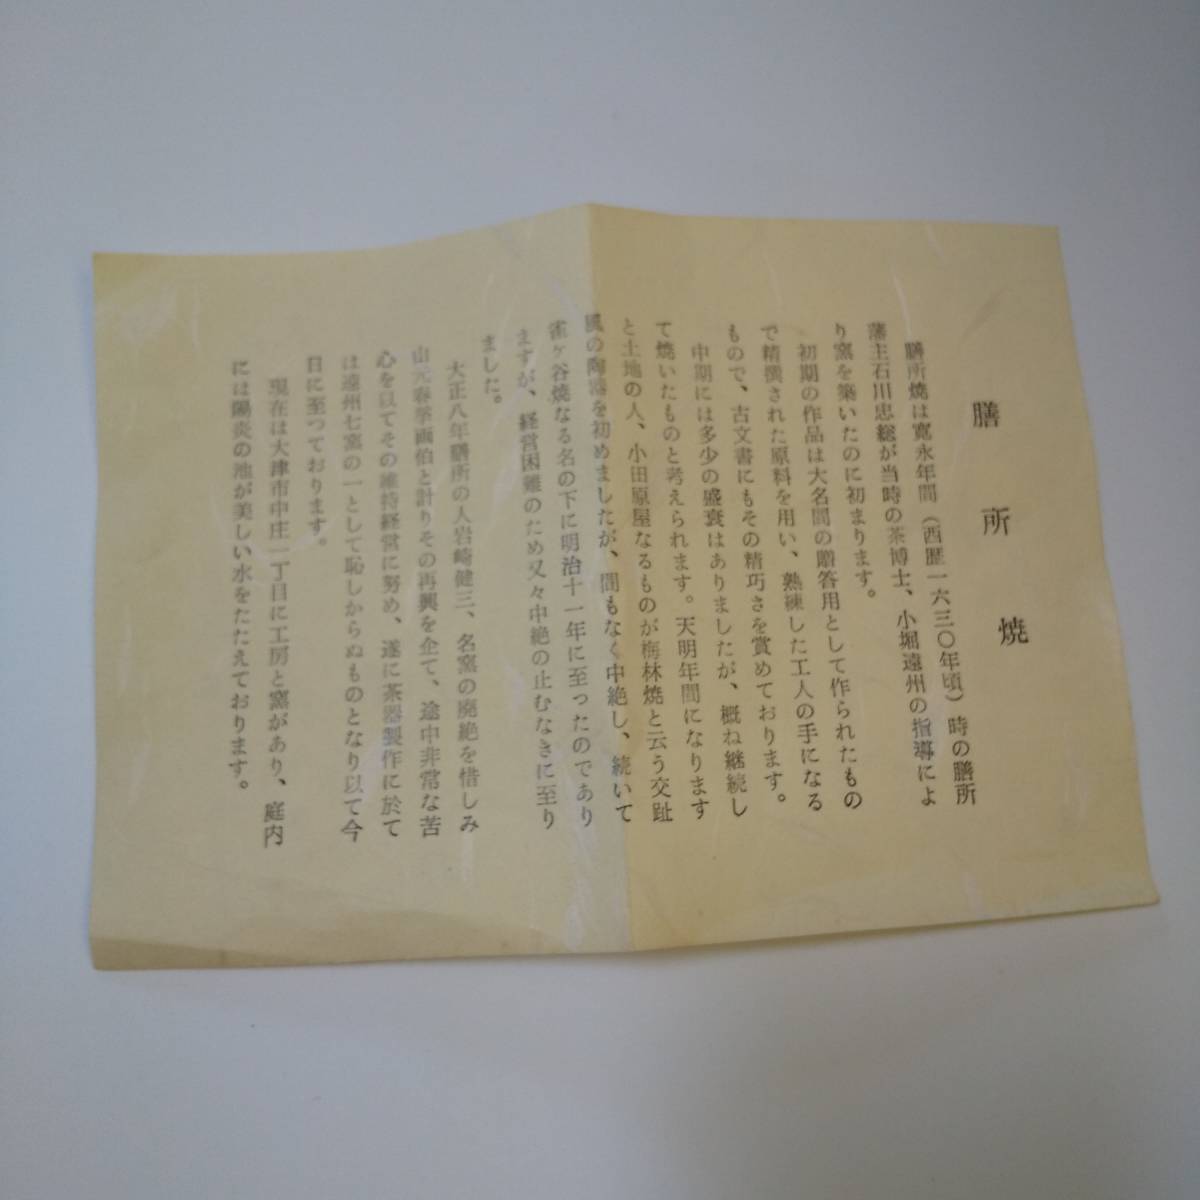 膳所焼
膳所焼は寛永年間（西歴一六三〇年頃）時の膳所
藩主石川忠総が当時の茶博士、小堀遠州の指導によ
り窯を築いたのに初まります。
初期の作品は大名間の贈答用として作られたもの
で精撰された原料を用い、熟練した工人の手になる
もので、古文書にもその精巧さを賞めております。
中期には多少の盛衰はありましたが、概ね継続し
て焼いたものと考えられます。天明年間になります
と土地の人、小田原屋なるものが梅林焼と云う交趾
風の陶器を初めましたが、間もなく中絶し、続いて
雀ヶ谷焼なる名の下に明治十一年に至ったのであり
ますが、経営困難のため又々中絶の止むなきに至り
ました。
大正八年膳所の人岩崎健三、名窯の廃絶を惜しみ
山元春挙画伯と計りその再興を企て、途中非常な苦
心を以てその維持経営に努め、遂に茶器製作に於て
は遠州七窯の一として恥しからぬものとなり以て今
日に至つております。
現在は大津市中庄一丁目に工房と窯があり、庭内
には陽炎の池が美しい水をたたえております。